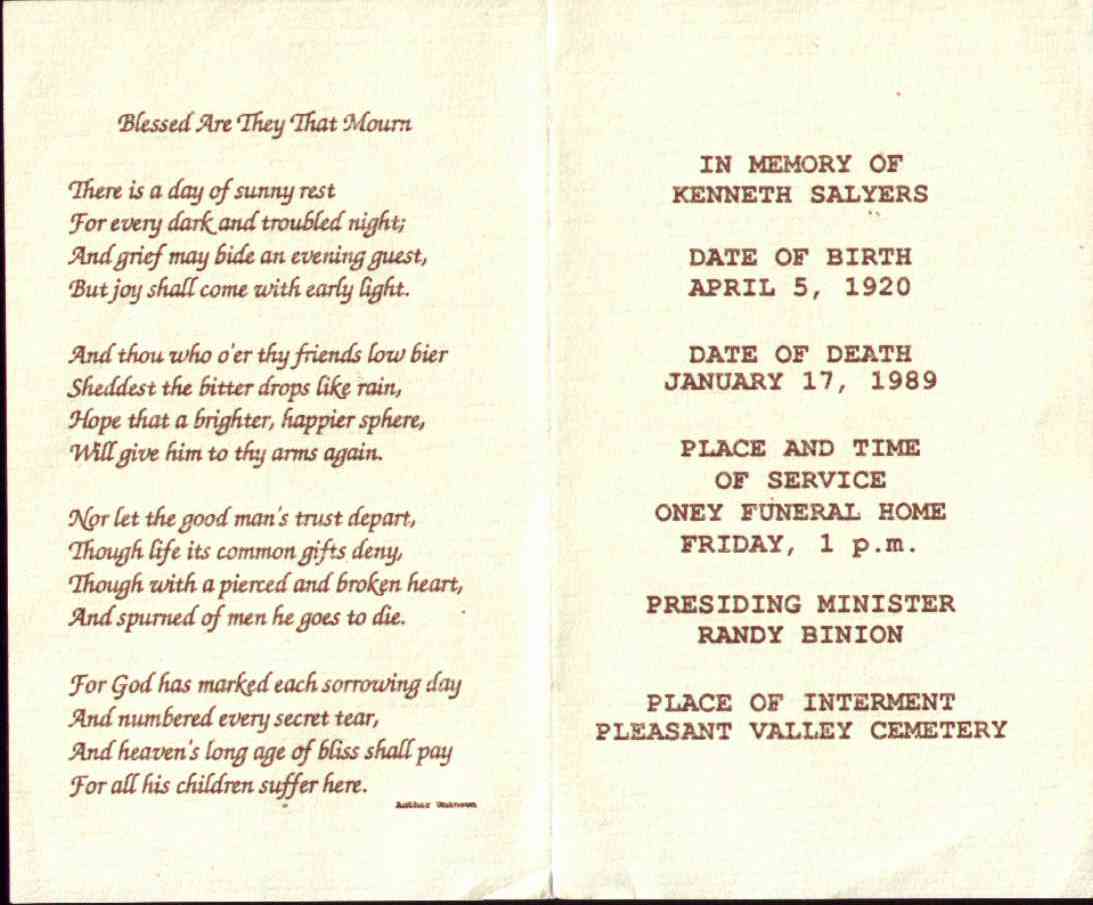 Blessed Are They That Mourn
There is a day of sunny rest
For every dark and troubled night;
And grief may bide an evening guest,
But joy shall come with early light.
And thou who o'er thy friends low bier
Sheddest the bitter drops like rain,
Hope that a brighter, happier sphere,
Will give him to thy arms again.
Nor let the good man's trust depart,
Though life its common gifts deny,
Though with a pierced and broken heart,
And spurned of men he goes to die.
For God has marked each sorrowing day
And numbered every secret tear,
And heaven's long age of bliss shall pay
For all his children suffer here.
Author Unknown
IN MEMORY OF
KENNETH SALYERS
DATE OF BIRTH
APRIL 5, 1920
DATE OF DEATH
JANUARY 17, 1989
PLACE AND TIME
OF SERVICE
ONEY FUNERAL HOME
FRIDAY, 1 p.m.
PRESIDING MINISTER
RANDY BINION
PLACE OF INTERMENT
PLEASANT VALLEY CEMETERY